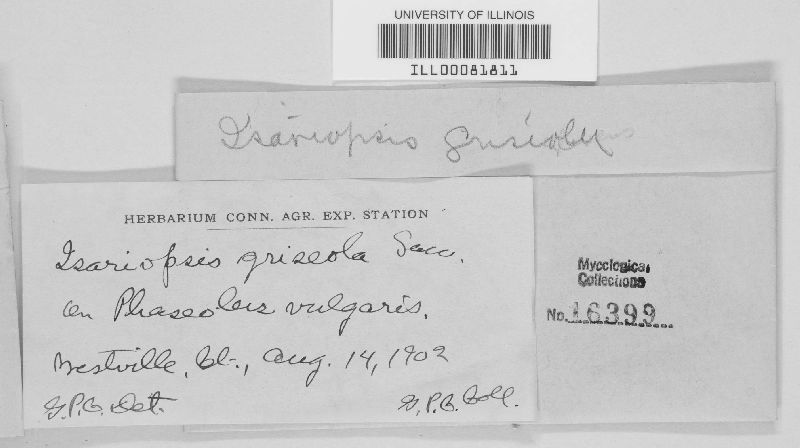 UNIVERSITY OF ILLINOIS
ILL00081811
Isariopsis griseola
HERBARIUM CONN. AGR. EXP. STATION
Isariopsis griseola Sacc.
on Phaseolus vulgaris.
Westville, Ct., Aug. 14, 1902
G.P.C. Det.
G.P.C. Coll.
Mycological
Collections
No. 16399